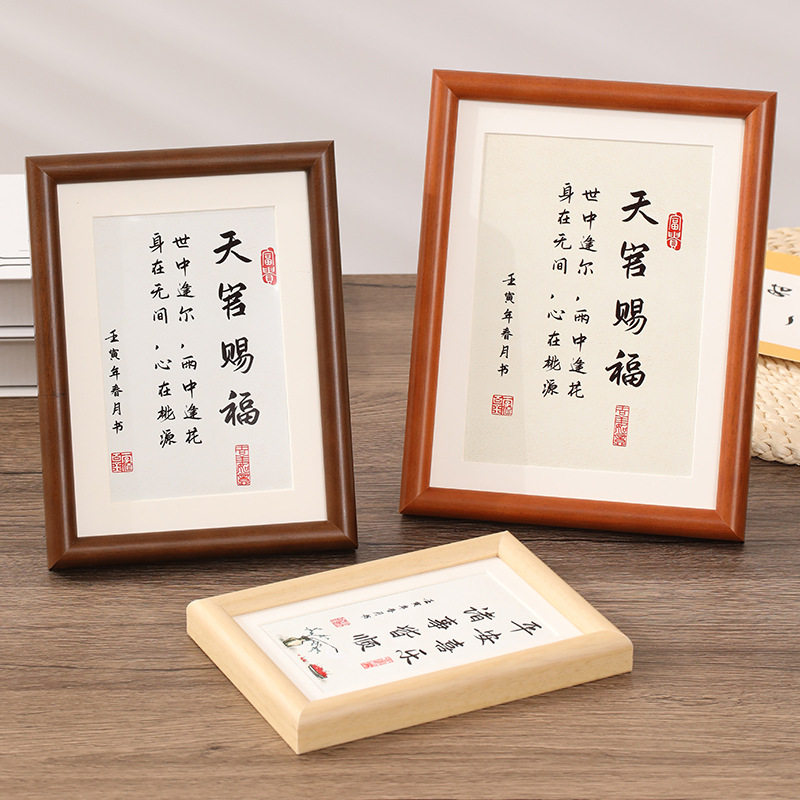 富貴
天官赐福
世中逢尔,雨中逢花
身在无间,心在桃源
壬寅年春月书
富貴
天官赐福
世中逢尔,雨中逢花
身在无间,心在桃源
壬寅年春月书
平安喜乐
诸事皆顺
壬寅年春月书